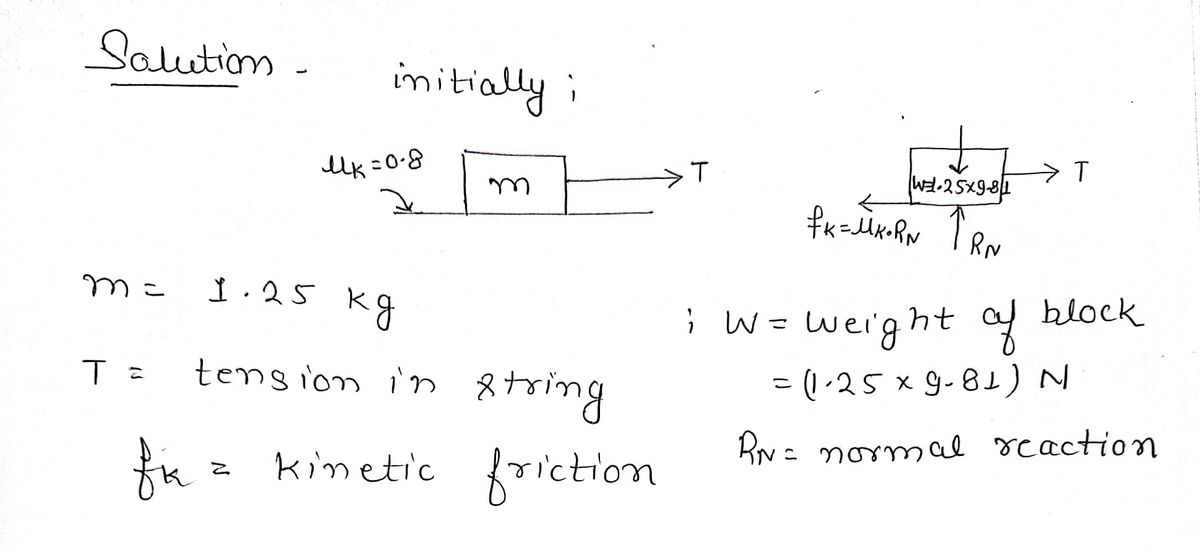 Solution -
initially ;
μk = 0.8
m
T
W=1.25x9.81
T
fk = μk.RN
RN
m = 1.25 kg
; W = weight of block
T = tension in string
= (1.25 x 9.81) N
RN = normal reaction
fk = kinetic friction